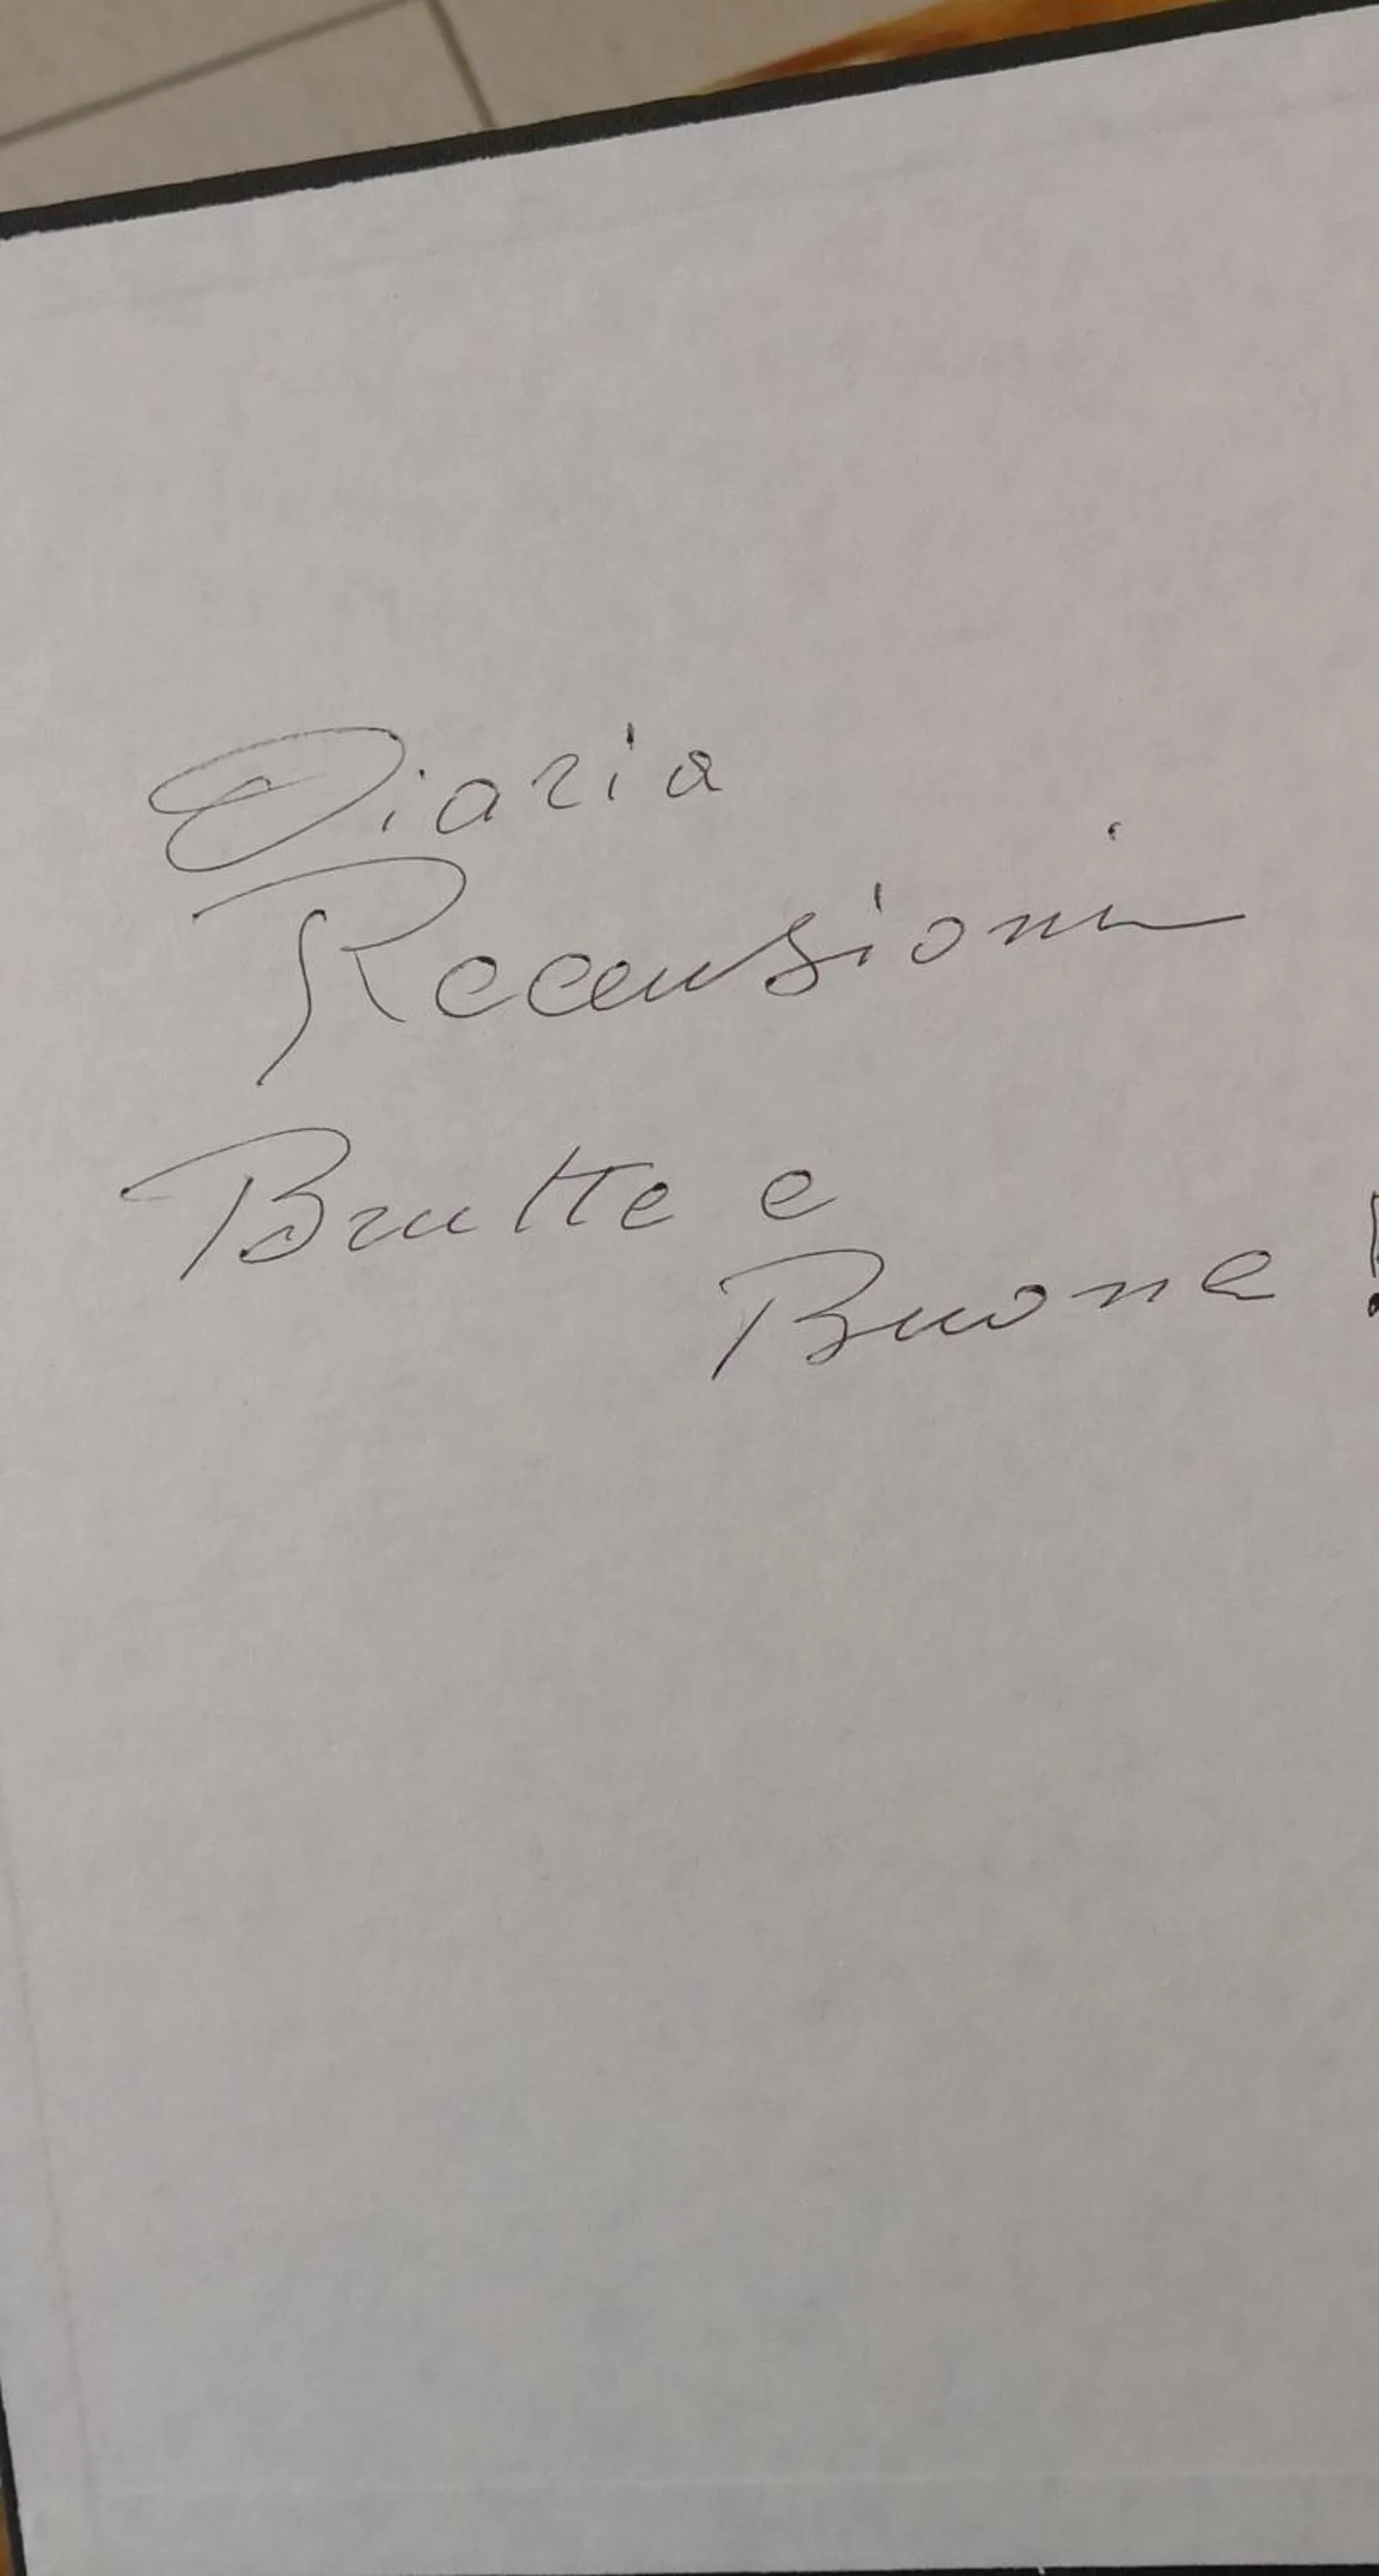 Diaria
Recensioni
Brutte e
Buone!